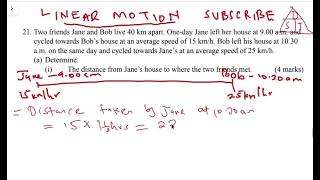 LINEAR MOTION SUBSCRIBE
21. Two friends Jane and Bob live 40 km apart. One-day Jane left her house at 9.00 a.m. and
cycled towards Bob's house at an average speed of 15 km/h. Bob left his house at 10.30
a.m. on the same day and cycled towards Jane's at an average speed of 25 km/h.
(a) Determine:
(i) The distance from Jane's house to where the two friends met. (4 marks)
Jane - 9.00am
Bob - 10.30am
15km/hr
25km/hr
= Distance taken by Jane at 10.30am
= 15 x 1½hrs = 22